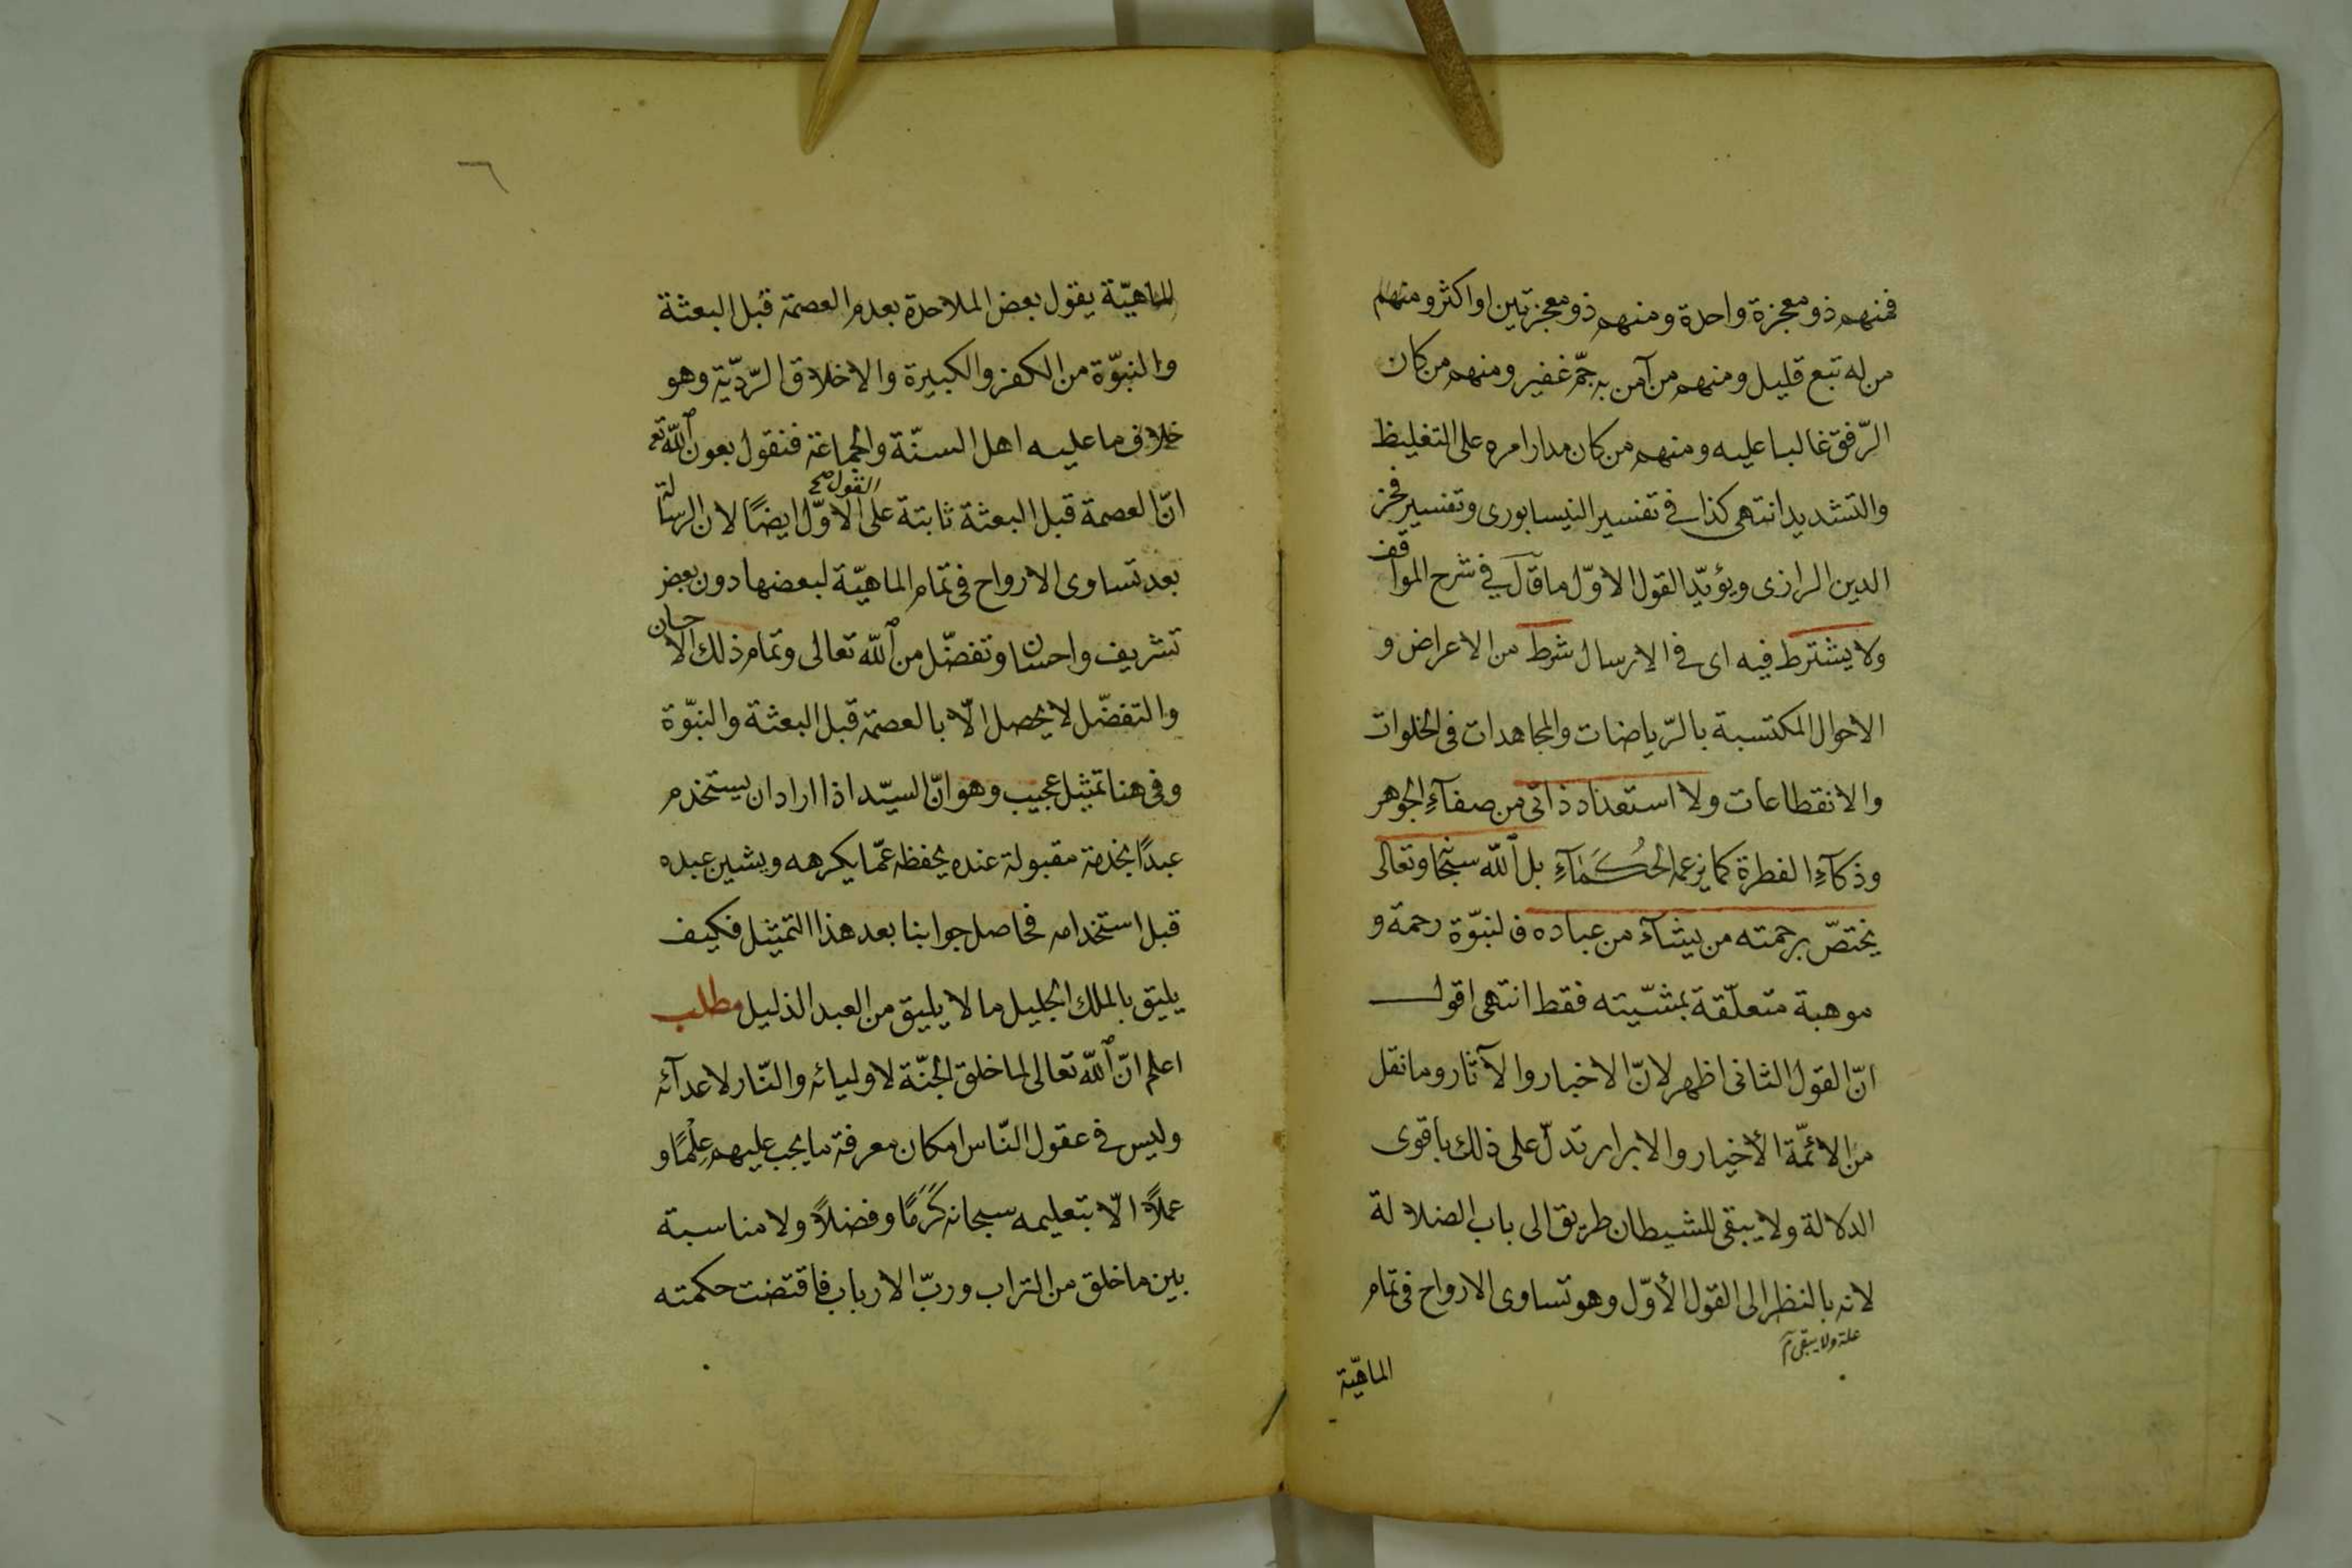 فمنهم ذو معجزة واحدة ومنهم ذو معجزتين او اكثر ومنهم
من له تبع قليل ومنهم من آمن به جمّ غفير ومنهم من كان
الرّفق غالبا عليه ومنهم من كان مدار امره على التغليظ
والتشديد انتهى كذا فى تفسير النيسابورى وتفسير فخر
الدين الرازى ويؤيّد القول الاوّل ما قال فى شرح المواقف
ولا يشترط فيه اى فى الارسال شرط من الاعراض و
الاحوال المكتسبة بالرّياضات والمجاهدات فى الخلوات
والانقطاعات ولا استعداد ذاتى من صفآء الجوهر
وذكآءِ الفطرة كما يزعمه الحُكَمَآءِ بل اللّٰه سبحا وتعالى
يختصّ برحمته من يشآء من عباده فالنبوّة رحمة و
موهبة متعلّقة بمشيّته فقط انتهى اقول
انّ القول الثانى اظهر لانّ الاخبار والآثار وما نقل
من الائمّة الأخيار والابرار تدلّ على ذلك باقوى
الدلالة ولا يبقى للشيطان طريق الى باب الضلالة
لانه بالنظر الى القول الأوّل وهو تساوى الارواح فى تمام
علة ولا يبقى م
الماهيّة
٦
الماهيّة يقول بعض الملاحدة بعدم العصمة قبل البعثة
والنبوّة من الكفر والكبيرة والاخلاق الرّديّة وهو
خلاف ما عليه اهل السنّة والجماعة فنقول بعون اللّٰه تع
القول صح
انّ العصمة قبل البعثة ثابتة على الاوّل ايضًا لان الرسالة
بعد تساوى الارواح فى تمام الماهيّة لبعضها دون بعض
تشريف واحسان وتفضّل من اللّٰه تعالى وتمام ذلك الاحسان
والتفضّل لا يحصل الّا بالعصمة قبل البعثة والنبوّة
وفى هنا تمثيل عجيب وهو انّ السيّد اذا اراد ان يستخدم
عبدًا بخدمة مقبولة عنده يحفظه عمّا يكرهه ويشين عبده
قبل استخدامه فحاصل جوابنا بعد هذا التمثيل فكيف
يليق بالملك الجليل ما لا يليق من العبد الذليل مطلب
اعلم انّ اللّٰه تعالى لما خلق الجنّة لاوليائه والنّار لاعدآئه
وليس فى عقول النّاس امكان معرفة ما يجب عليهم عِلْمًا و
عملاً الّا بتعليمه سبحانه كَرَمًا وفضلاً ولا مناسبة
بين ما خلق من التراب وربّ الارباب فاقتضت حكمته